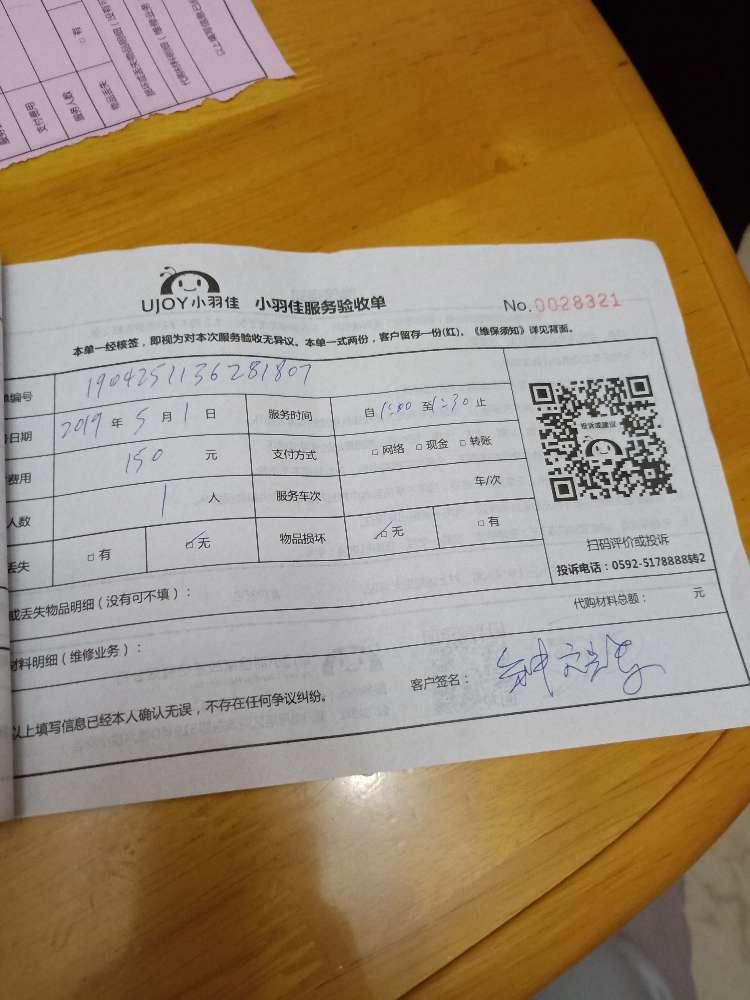 支付费用
服务人数
物品丢失
□有
UJOY小羽佳 小羽佳服务验收单 No.0028321
本单一经核签，即视为对本次服务验收无异议。本单一式两份，客户留存一份(红)。《维保须知》详见背面。
单编号 1904251136281807
日期 2019 年 5 月 1 日 服务时间 自 1:00 至 1:30 止
费用 150 元 支付方式 □网络 □现金 □转账
人数 1 人 服务车次 车/次
丢失 □有 □无 物品损坏 □无 □有
投诉或建议
扫码评价或投诉
投诉电话：0592-5178888转2
或丢失物品明细（没有可不填）：
代购材料总额： 元
材料明细（维修业务）：
以上填写信息已经本人确认无误，不存在任何争议纠纷。 客户签名：